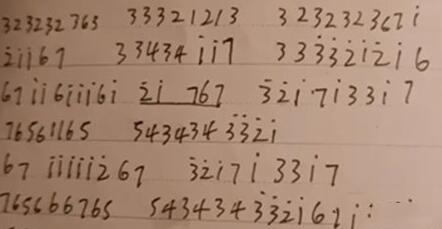 323232765 33321213 3232323671̇
2̇1̇1̇67 334341̇1̇7 333̇3̇2̇1̇2̇1̇6
671̇1̇61̇1̇1̇61̇ 2̇1̇767 3̇2̇1̇71̇331̇7
76561165 5434343̇3̇2̇1̇
671̇1̇1̇1̇1̇2̇67 3̇2̇1̇71̇331̇7
765666765 5434343̇3̇2̇1̇671̇